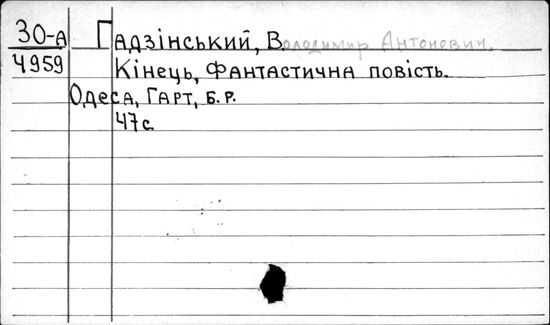 30-А Гадзінський, Володимир Антонович.
4959 Кінець, фантастична повість.
Одеса, Гарт, б.р.
47с.